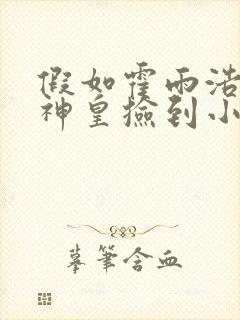 假如霍雨浩
神皇捡到小
摹笔含血